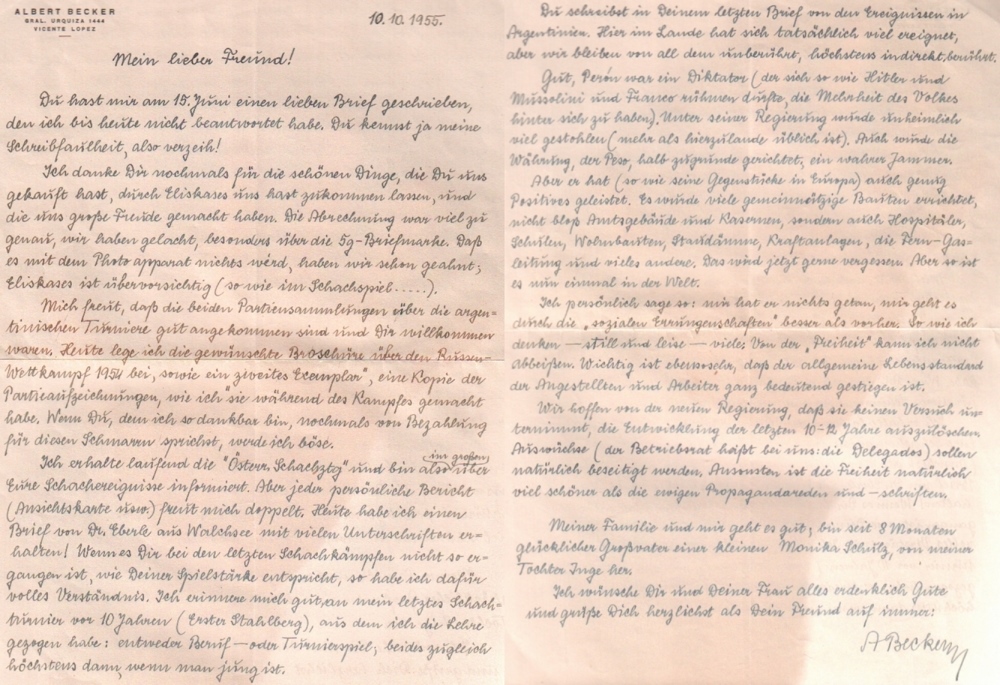 ALBERT BECKER
GRAL. URQUIZA 1444
VICENTE LOPEZ
10.10.1955.
Mein lieber Freund!
Du hast mir am 15. Juni einen lieben Brief geschrieben,
den ich bis heute nicht beantwortet habe. Du kennst ja meine
Schreibfaulheit, also verzeih!
Ich danke Dir nochmals für die schönen Dinge, die Du uns
gekauft hast, durch Eliskases uns hast zukommen lassen, und
die uns große Freude gemacht haben. Die Abrechnung war viel zu
genau, wir haben gelacht, besonders über die 5g-Briefmarke. Daß
es mit dem Photoapparat nichts wird, haben wir schon geahnt;
Eliskases ist übervorsichtig (so wie im Schachspiel.....).
Mich freut, daß die beiden Partiensammlungen über die argen-
tinischen Turniere gut angekommen sind und Dir willkommen
waren. Heute lege ich die gewünschte Broschüre über den Russen-
Wettkampf 1954 bei, sowie ein „zweites Exemplar", eine Kopie der
Partieaufzeichnungen, wie ich sie während des Kampfes gemacht
habe. Wenn Du, dem ich so dankbar bin, nochmals von Bezahlung
für diesen Schmarren sprichst, werde ich böse.
Ich erhalte laufend die "Österr. Schachztg" und bin also (im großen) über
Eure Schachereignisse informiert. Aber jeder persönliche Bericht
(Ansichtskarte usw.) freut mich doppelt. Heute habe ich einen
Brief von Dr. Eberle aus Walchsee mit vielen Unterschriften er-
halten! Wenn es Dir bei den letzten Schachkämpfen nicht so er-
gangen ist, wie Deiner Spielstärke entspricht, so habe ich dafür
volles Verständnis. Ich erinnere mich gut an mein letztes Schach-
turnier vor 10 Jahren (Erster Stahlberg), aus dem ich die Lehre
gezogen habe: entweder Beruf — oder Turnierspiel; beides zugleich
höchstens dann, wenn man jung ist.
Du schreibst in Deinem letzten Brief von den Ereignissen in
Argentinien. Hier im Lande hat sich tatsächlich viel ereignet,
aber wir bleiben von all dem unberührt, höchstens indirekt berührt.
Gut, Perón war ein Diktator (der sich so wie Hitler und
Mussolini und Franco rühmen durfte, die Mehrheit des Volkes
hinter sich zu haben). Unter seiner Regierung wurde unheimlich
viel gestohlen (mehr als hierzulande üblich ist). Auch wurde die
Währung, der Peso, halb zugrunde gerichtet, ein wahrer Jammer.
Aber er hat (so wie seine Gegenstücke in Europa) auch genug
Positives geleistet. Es wurde viele gemeinnützige Bauten errichtet,
nicht bloß Amtsgebäude und Kasernen, sondern auch Hospitäler,
Schulen, Wohnbauten, Staudämme, Kraftanlagen, die Fern-Gas-
leitung und vieles andere. Das wird jetzt gerne vergessen. Aber so ist
es nun einmal in der Welt.
Ich persönlich sage so: mir hat er nichts getan, mir geht es
durch die „sozialen Errungenschaften" besser als vorher. So wie ich
denken — still und leise — viele; Von der „Freiheit" kann ich nicht
Abbeißen. Wichtig ist ebensosehr, daß der allgemeine Lebensstandard
der Angestellten und Arbeiter ganz bedeutend gestiegen ist.
Wir hoffen von der neuen Regierung, daß sie keinen Versuch un-
ternimmt, die Entwicklung der letzten 10-12 Jahre auszulöschen.
Auswüchse (der Betriebsrat heißt bei uns: die Delegados) sollen
natürlich beseitigt werden. Ansonsten ist die Freiheit natürlich
viel schöner als die ewigen Propagandareden und -schriften.
Meiner Familie und mir geht es gut; bin seit 8 Monaten
glücklicher Großvater einer kleinen Monika Schütz, von meiner
Tochter Inge her.
Ich wünsche Dir und Deiner Frau alles erdenklich Gute
und grüße Dich herzlichst als Dein Freund auf immer:
A Becker